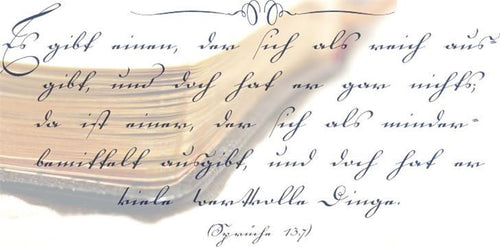 Es gibt einen, der sich als reich aus-
gibt, und doch hat er gar nichts;
da ist einer, der sich als minder-
bemittelt ausgibt, und doch hat er
viele wertvolle Dinge.
(Sprüche 13,7)